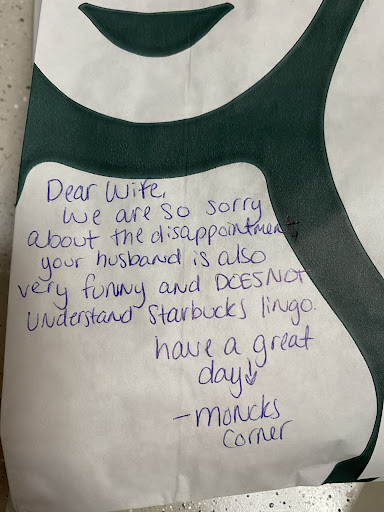 Dear Wife,
We are so sorry
about the disappointment,
your husband is also
very funny and DOES NOT
understand Starbucks lingo.
have a great
day
- Moncks
Corner